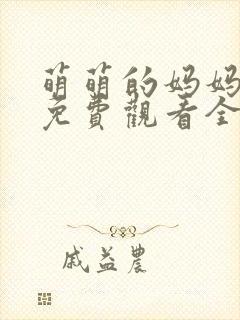 萌萌的妈妈
免費觀看全
戚益農